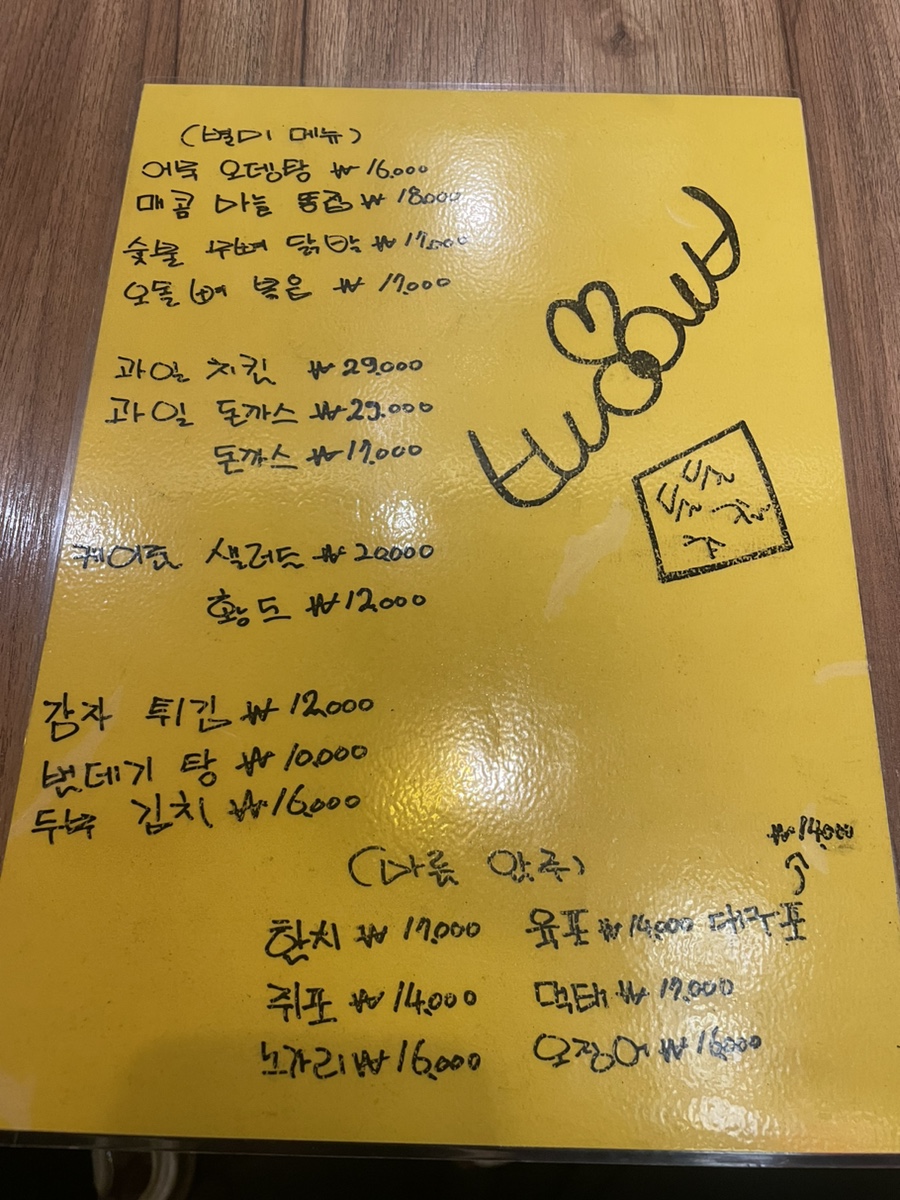 (별미 메뉴)
어묵 오뎅탕 ₩16,000
매콤 마늘 똥집 ₩18,000
숯불 무뼈 닭발 ₩17,000
오돌뼈 볶음 ₩17,000
과일 치킨 ₩29,000
과일 돈까스 ₩29,000
돈까스 ₩17,000
케이준 샐러드 ₩20,000
황도 ₩12,000
감자 튀김 ₩12,000
번데기 탕 ₩10,000
두부 김치 ₩16,000
(마른 안주)
₩14,000
한치 ₩17,000 육포 ₩14,000 대구포
쥐포 ₩14,000 먹태 ₩17,000
노가리 ₩16,000 오징어 ₩16,000